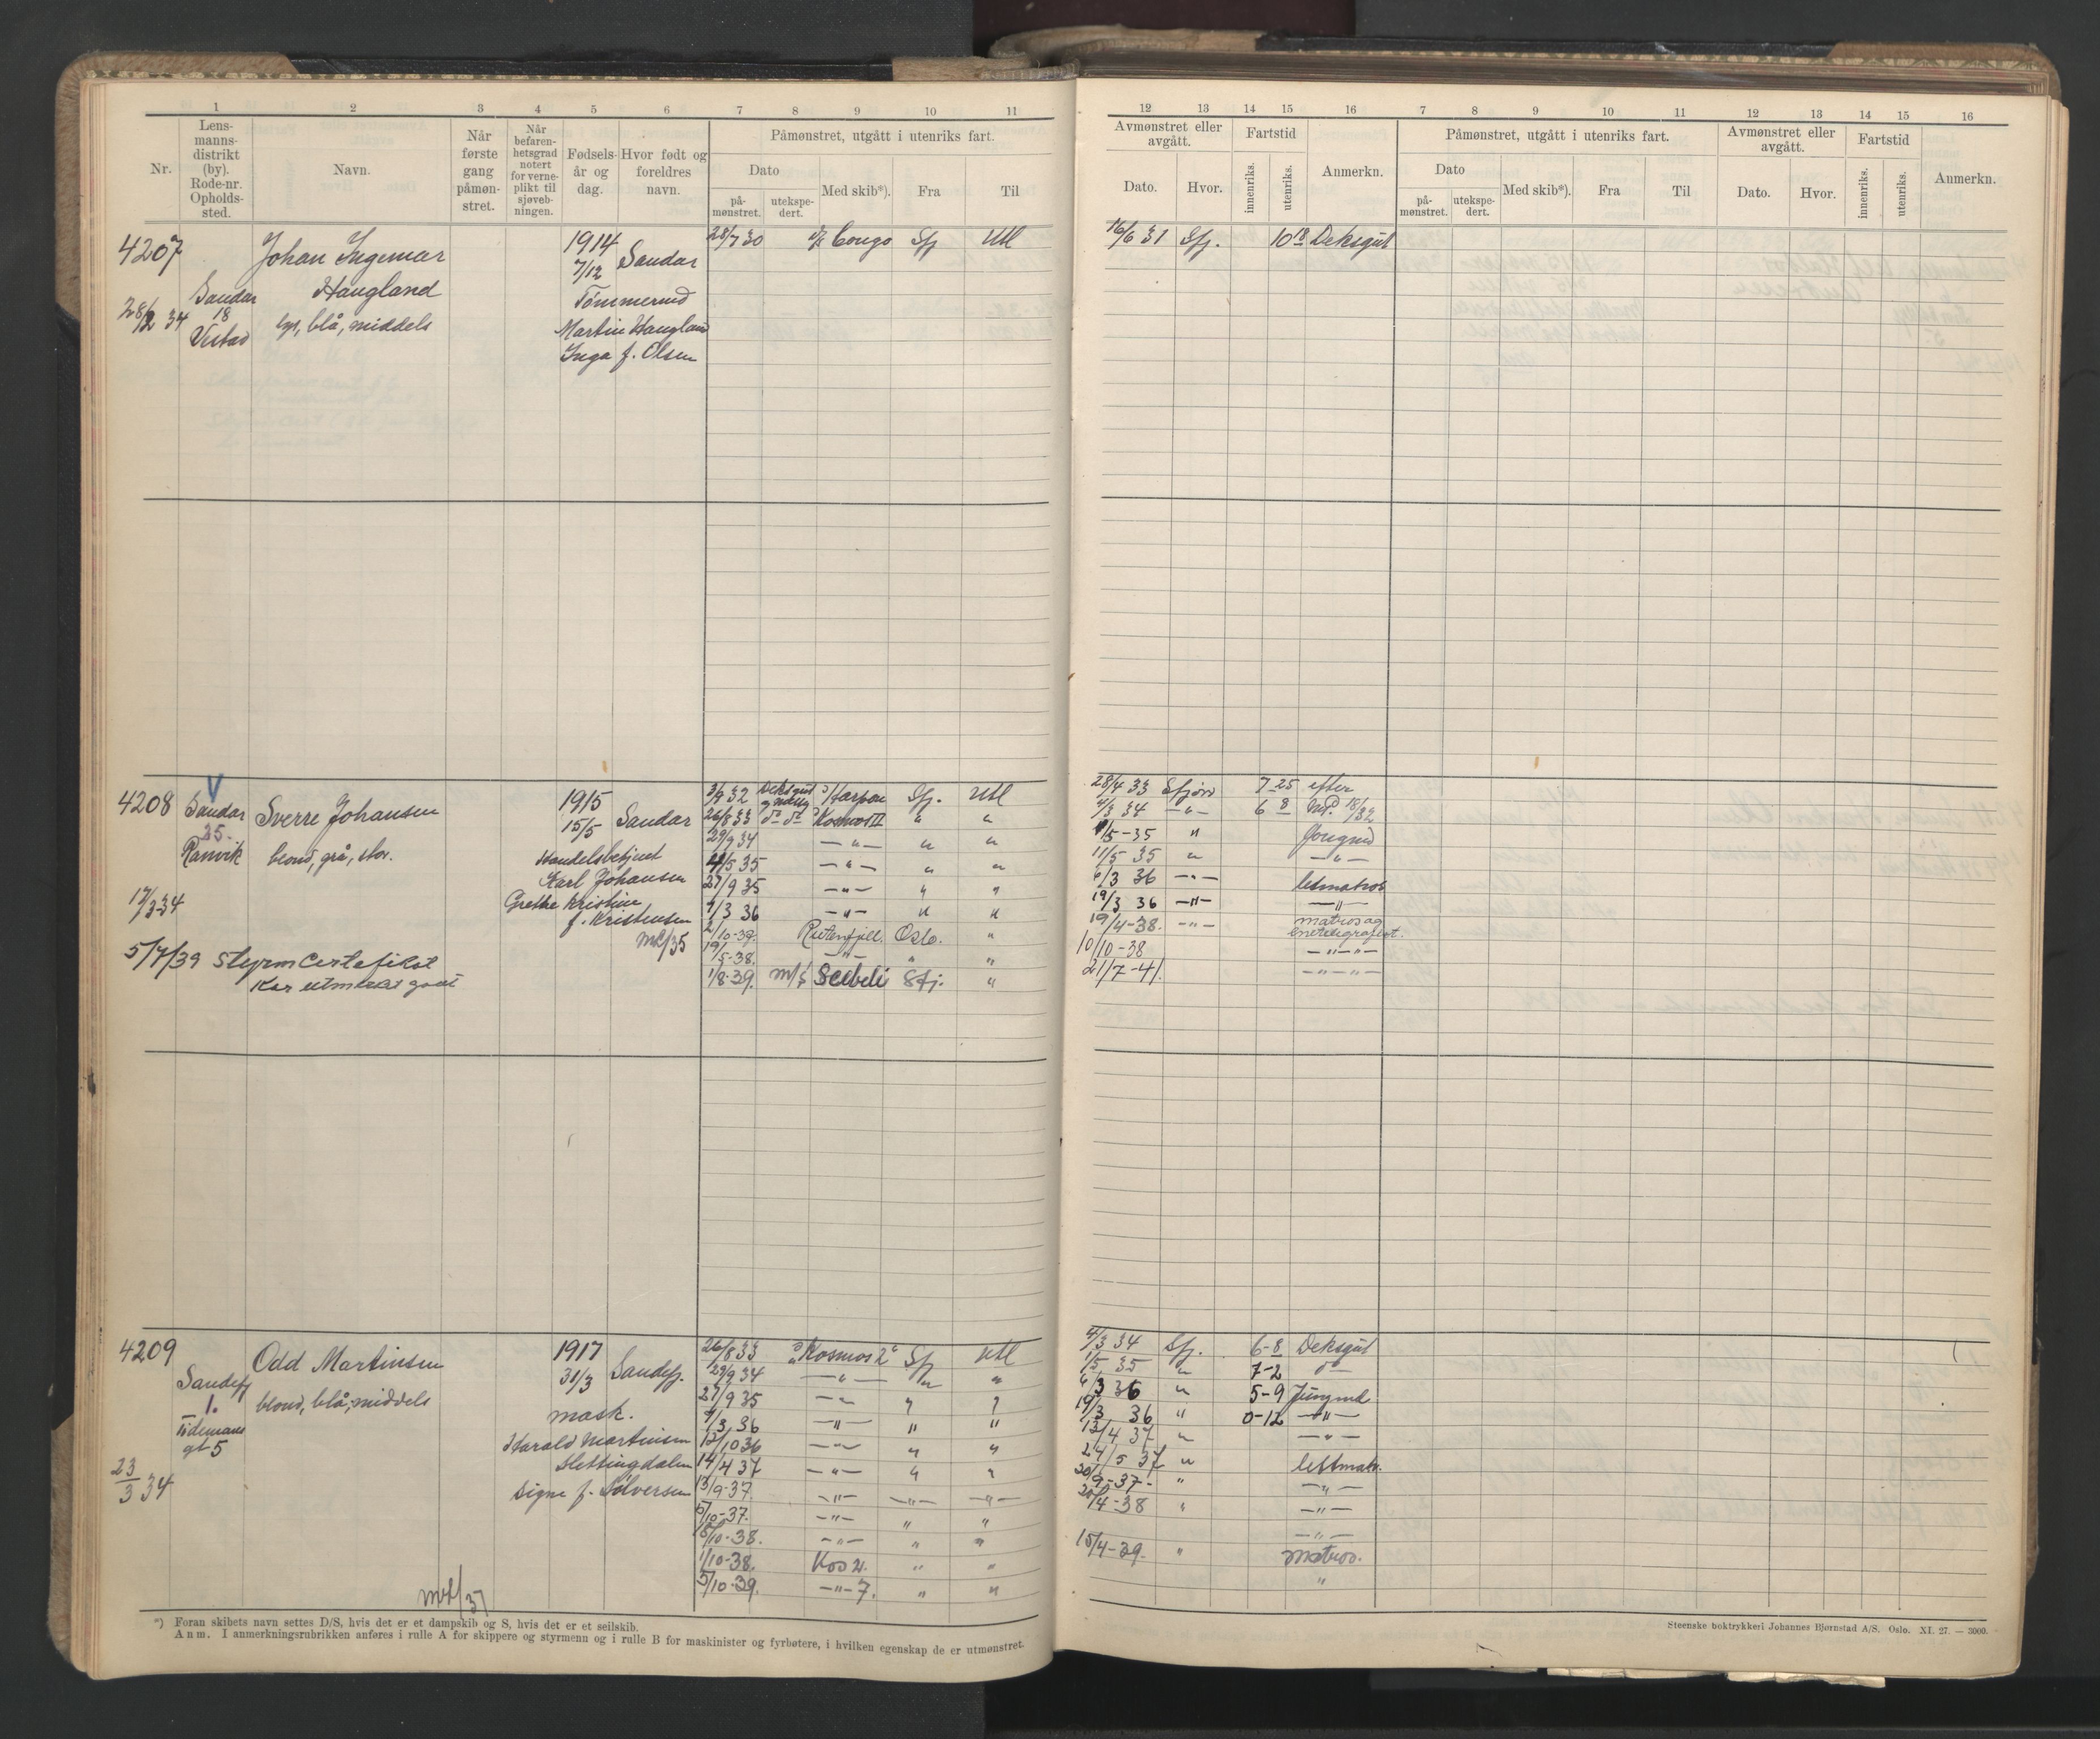 1 2 3 4 5 6 7 8 9 10 11
Nr. Lens-manns-distrikt (by). Rode-nr. Opholds-sted. Navn. Når første gang påmøn-stret. Når befaren-hetsgrad notert for verne-plikt til sjøveb-ningen. Fødsels-år og dag. Hvor født og foreldres navn. Påmønstret, utgått i utenriks fart.
Dato Med skib*). Fra Til
på-mønstret. utekspe-dert.
4207 Johan Ingemar 1914 Sandar 28/7 30 Congo Sfj Utl
Haugland 7/12
Sandar
18 Tømmermd
28/2 34 lys, blå, middels Martin Haugland
Inga f. Olsen
4208 Sandar Sverre Johansen 1915 Sandar Sfj. Utl
25. 15/5 26/8 33 Kosmos II " "
Ranvik blond, grå, stor. 29/9 34 —"— " "
Handelsbetjent /5 35 —"— " "
Karl Johansen 27/9 35 —"— " "
17/3 34 Grethe Kristine 7/3 36 —"— " "
f. Kristensen 2/10-39. Oslo. "
mL/35 19/5-38. —"— " "
5/7/39 Styrm Certefikat 1/8-39. m/s Sfj. "
Kar utmerket godt
4209 Odd Martinsen 1917 Sandefj. 26/8 33 "Kosmos 2" Sfj Utl
Sandefj 31/3 29/9 34 —"— " "
1. blond, blå, middels 27/9 35 —"— " "
Tidemans mask. 7/3 36 —"— " "
gt 5 Harald Martinsen 12/10 36 —"— " "
23/3 34 Slettingdalen 14/4 37 —"— " "
Signe f. Sølversen 13/9-37. —"— —"— —"—
5/10-37. —"— " "
15/10-38. —"— " "
1/10-38. Kos 21. " "
5/10-39. —"— 7. " "
mL/37
*) Foran skibets navn settes D/S, hvis det er et dampskib og S, hvis det er et seilskib.
Anm. I anmerkningsrubrikken anføres i rulle A for skippere og styrmenn og i rulle B for maskinister og fyrbøtere, i hvilken egenskap de er utmønstret.
12 13 14 15 16 7 8 9 10 11 12 13 14 15 16
Avmønstret eller avgått. Fartstid Anmerkn. Påmønstret, utgått i utenriks fart. Avmønstret eller avgått. Fartstid Anmerkn.
Dato. Hvor. innenriks. utenriks. Dato Med skib*). Fra Til Dato. Hvor. innenriks. utenriks.
på-mønstret. utekspe-dert.
16/6 31 Sfj. 10 18 Deksgut
28/4 33 Sfjord 7 25 efter
4/3 34 —"— 6 8 18/32
1/5-35 " Jungmd
11/5 35 " —"—
6/3 36 —"— letmatros
19/3 36 —"— —"—
19/4-38. —"— matros og
10/10-38 —"—"—
21/7-41. —"—"—
4/3 34 Sfj. 6-8 Deksgut
1/5 35 " 7-2 do
6/3 36 " 5-9 Jungmd
19/3 36 " 0-12 —"—
13/4 37 " —"—
24/5 37 " lettmatr.
30/9-37- " —"—
20/4-38 " —"—
—"—
15/4-39. " Matros.
"
Steenske boktrykkeri Johannes Bjørnstad A/S. Oslo. XI. 27. — 3000.